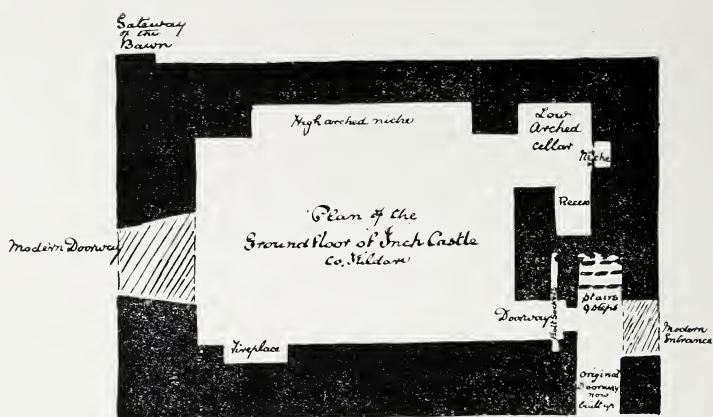 Gateway
of the
Bawn
High arched niche
Low
Arched
cellar
Niche
Recess
Plan of the
Ground floor of Inch Castle
Co, Kildare
Modern Doorway
Doorway
Bolt Sockets
Stairs
9 steps
Modern
Entrance
Fireplace
original
Doorway
now
built up